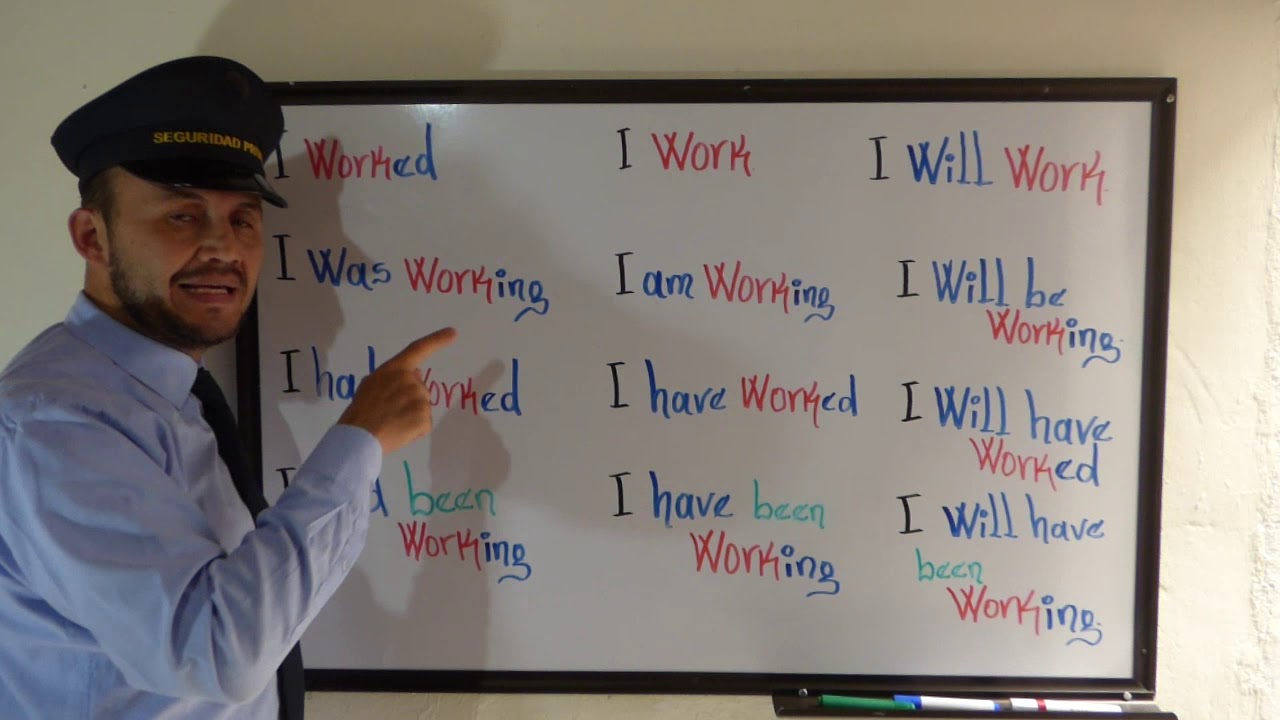 SEGURIDAD
I Worked
I Work
I Will Work
I Was Working
I am Working
I Will be
Working
I Worked
I have Worked
I Will have
Worked
been
Working
I have been
Working
I Will have
been
Working